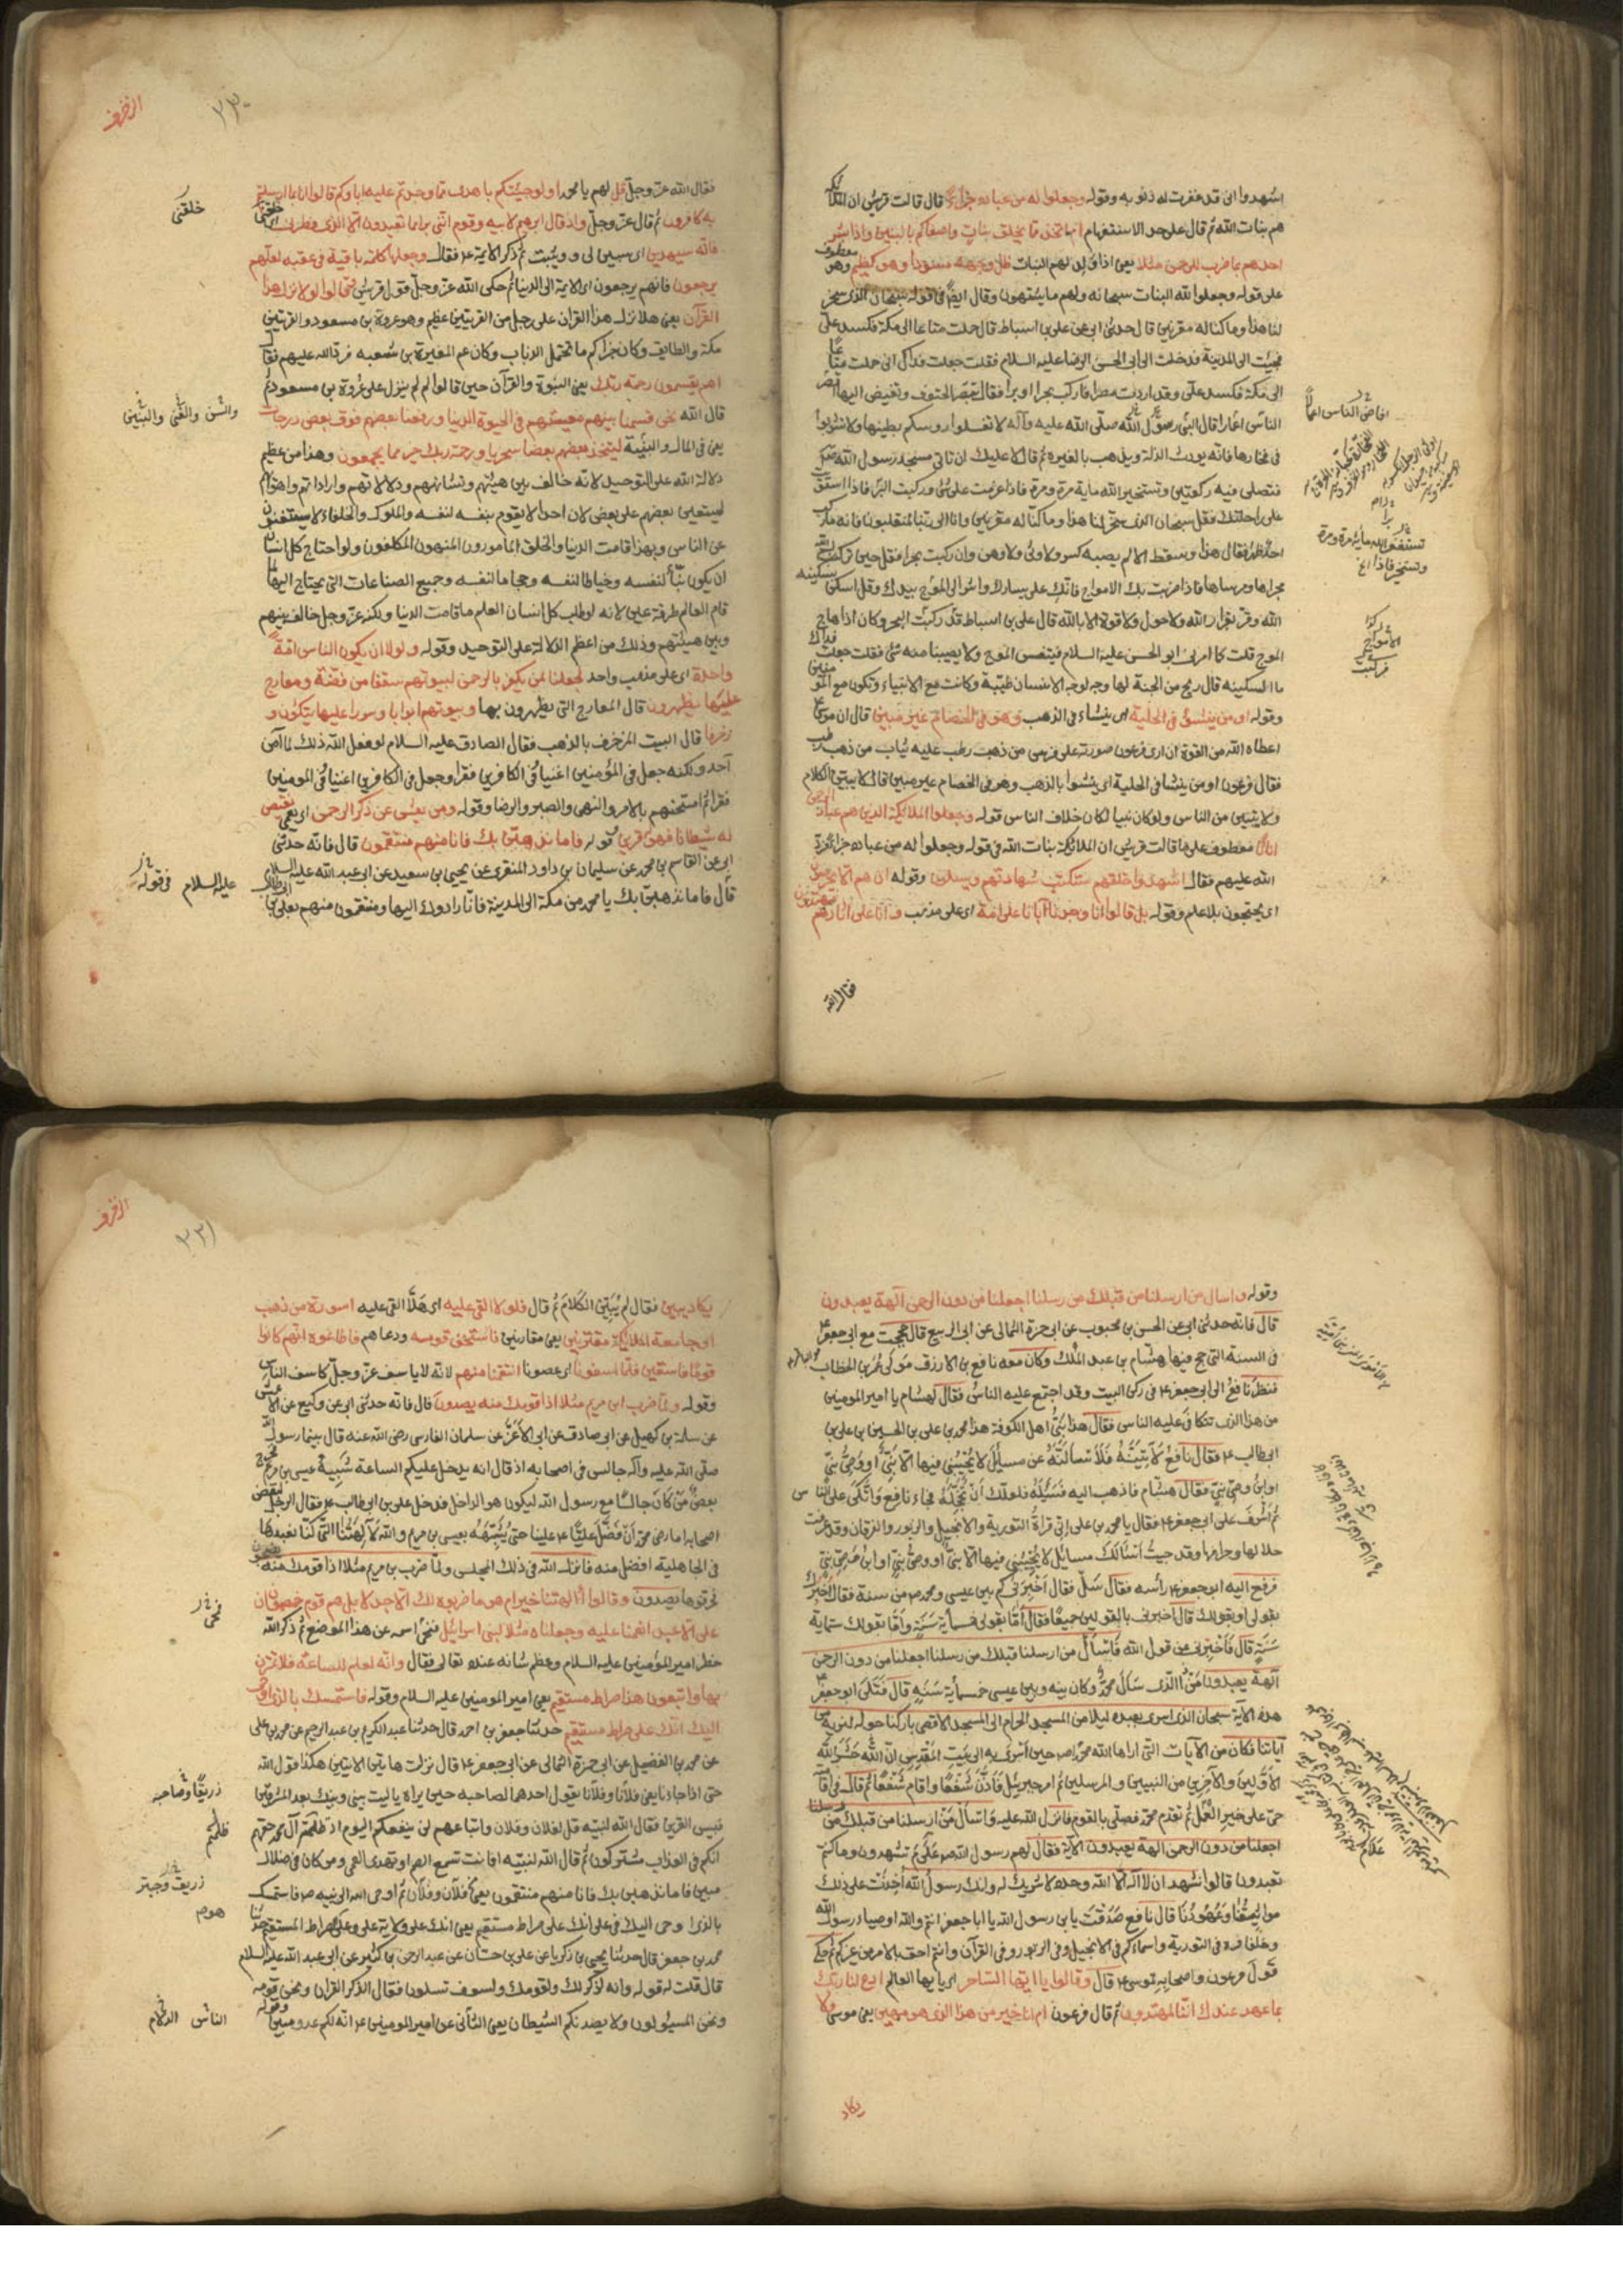 اشهدوا انى قد غفرت له ذنوبه وقوله وجعلوا له من عباده جزأ قال قالت قريش ان الملائكه
هم بنات الله ثم قال على حد الاستفهام ام اتخذ مما يخلق بنات واصفاكم بالبنين واذا بشر
احدهم بما ضرب للرحمن مثلا يعنى اذا ولد لهم البنات ظل وجهه مسودا وهو كظيم وهو معطوف
على قوله وجعلوا لله البنات سبحانه ولهم ما يشتهون وقال ايضا فى قوله سبحان الذى سخر
لنا هذا وما كنا له مقرنين قال حدثنى ابى عن على بن اسباط قال حملت متاعا الى مكة فكسد على
فجئت الى المدينة فدخلت الى ابى الحسن الرضا عليه السلام فقلت جعلت فداك انى حملت متاعا
الى مكة فكسد على وقد اردت مصر افاركب بحرا او برا فقال مصر الحتوف وتفيض اليها اقصر
الناس اعمارا قال النبى رسول الله صلى الله عليه وآله لا تغسلوا روسكم بطينها ولا تشربوا
فى فخارها فانه يورث الذلة ويذهب بالغيرة ثم قال لا عليك ان تاتى مسجد رسول الله ص
فتصلى فيه ركعتين وتستخير الله ماية مرة ومرة فاذا عزمت على شئ وركبت البر فاذا استوت
على راحلتك فقل سبحان الذى سخر لنا هذا وما كنا له مقرنين وانا الى ربنا لمنقلبون فانه ما ركب
احد ظهرا فقال هذا وسقط الا لم يصبه كسر ولا وثى ولا وهن وان ركبت بحرا فقل حين تركب بسم الله
مجراها ومرساها فاذا ضربت بك الامواج فاتك على يسارك واشر الى الموج بيدك وقل اسكن بسكينه
الله وقر بقرار الله ولا حول ولا قوة الا بالله قال على بن اسباط قد ركبت البحر وكان اذا هاج
الموج قلت كما امرنى ابو الحسن عليه السلام فيتنفس الموج ولا يصيبنا منه شئ فقلت جعلت فداك
ما السكينه قال ريح من الجنة لها وجه كوجه الانسان طيبة وكانت مع الانبياء وتكون مع المومنين
وقوله او من ينشؤ فى الحلية اى ينشاء فى الذهب وهو فى الخصام غير مبين قال ان موسى
اعطاه الله من القوة ان ارى فرعون صورته على فرس من ذهب رطب عليه ثياب من ذهب رطب
فقال فرعون او من ينشا فى الحلية اى ينشوا بالذهب وهو فى الخصام غير مبين قال لا يبين الكلام
ولا يتبين من الناس ولو كان نبيا لكان خلاف الناس قوله وجعلوا الملائكة الذين هم عباد الرحمن
اناثا معطوف على ما قالت قريش ان الملائكة بنات الله فى قوله وجعلوا له من عباده جزأ فرد
الله عليهم فقال اشهدوا خلقهم ستكتب شهادتهم ويسئلون وقوله ان هم الا يخرصون
اى يحتجون بلا علم وقوله بل قالوا انا وجدنا آبانا على امة اى على مذهب وانا على آثارهم مهتدون
فقال الله
الزخرف
٢٣٠
فقال الله عز وجل قل لهم يا محمد اولو جئتكم باهدى مما وجدتم عليه اباوكم قالوا انا بما ارسلتم
به كافرون ثم قال عز وجل واذ قال ابرهيم لابيه وقومه اننى براء مما تعبدون الا الذى فطرنى
خلقنى
فانه سيهدين اى سيبين لى ويثبت ثم ذكر الائمة ع فقال وجعلها كلمة باقية فى عقبه لعلهم
يرجعون فانهم يرجعون اى الائمة الى الدنيا ثم حكى الله عز وجل قول قريش فقالوا لولا نزل هذا
القرآن يعنى هلا نزل هذا القرآن على رجل من القريتين عظيم وهو عروة بن مسعود والقريتين
مكة والطايف وكان جزاكم ما تحتمل الذباب وكان عم المغيرة بن شعبه فرد الله عليهم فقال
اهم يقسمون رحمة ربك يعنى النبوة والقرآن حين قالوا لم لم ينزل على عروة بن مسعود ثم
قال الله نحن قسمنا بينهم معيشتهم فى الحيوة الدنيا ورفعنا بعضهم فوق بعض درجات
يعنى فى المال والبنين ليتخذ بعضهم بعضا سخريا ورحمة ربك خير مما يجمعون وهذا من عظم
دلالة الله على التوحيد لانه خالف بين هيئتهم وتشابههم ودلالاتهم واراداتهم واهوائهم
ليستعين بعضهم على بعض لان احدا لا يقوم بنفسه لنفسه والملوك والخلفاء لا يستغنون
عن الناس وبهذا قامت الدنيا والخلق المأمورون المنهون المكلفون ولو احتاج كل انسان
ان يكون بنّاً لنفسه وخياطا لنفسه وحجاما لنفسه وجميع الصناعات التى يحتاج اليها لما
قام العالم طرفة عين لانه لو طلب كل انسان العلم ما قامت الدنيا ولكنه عز وجل خالف بينهم
وبين هيئتهم وذلك من اعظم الدلالة على التوحيد وقوله ولولا ان يكون الناس امة
واحدة اى على مذهب واحد لجعلنا لمن يكفر بالرحمن لبيوتهم سقفا من فضة ومعارج
عليها يظهرون قال المعارج التى يظهرون بها وبيوتهم ابوابا وسررا عليها يتكؤن و
زخرفا قال البيت المزخرف بالذهب فقال الصادق عليه السلام لو فعل الله ذلك لما آمن
احد ولكنه جعل فى المؤمنين اغنيا وفى الكافرين فقرا وجعل فى الكافرين اغنيا وفى المومنين
فقرا ثم امتحنهم بالامر والنهى والصبر والرضا وقوله ومن يعش عن ذكر الرحمن اى يعمى نقيض
له شيطانا فهو له قرين قوله فاما نذهبن بك فانا منهم منتقمون قال فانه حدثنى
ابى عن القاسم بن محمد عن سليمان بن داود المنقرى عن يحيى بن سعيد عن ابى عبد الله عليه السلام
قال فاما نذهبن بك يا محمد من مكة الى المدينة فانا رادوك اليها ومنتقمون منهم بعلى بن ابيطالب
عليه السلام فى قوله
وقوله واسال من ارسلنا من قبلك من رسلنا اجعلنا من دون الرحمن آلهة يعبدون
قال فانه حدثنى ابى عن الحسن بن محبوب عن ابى حمزة الثمالى عن ابى الربيع قال حججت مع ابى جعفر ع
فى السنة التى حج فيها هشام بن عبد الملك وكان معه نافع بن الازرق مولى عمر بن الخطاب
فنظر نافع الى ابى جعفر ع فى ركن البيت وقد اجتمع عليه الناس فقال لهشام يا امير المومنين
من هذا الذى تتكافى عليه الناس فقال هذا نبى اهل الكوفة هذا محمد بن على بن الحسين بن على بن
ابيطالب ع فقال نافع لآتينه فلاسالنه عن مسايل لا يجيبنى فيها الا نبى او وصى نبى
او ابن وصى نبى فقال هشام فاذهب اليه فسئله فلعلك ان تخجله فجاء نافع واتكى على الناس
ثم اشرف على ابى جعفر ع فقال يا محمد بن على انى قرأت التورية والانجيل والزبور والفرقان وقد عرفت
حلالها وحرامها وقد جيت اسئالك مسايل لا يجيبنى فيها الا نبى او وصى نبى او ابن وصى نبى
فرفع اليه ابو جعفر ع رأسه فقال سل فقال اخبرنى كم بين عيسى ومحمد ص من سنة فقال اخبرك
بقولى او بقولك قال اخبرنى بالقولين جميعا فقال اما بقولى فخمسمأية سنة واما بقولك ستماية
سنة قال فاخبرنى عن قول الله فاسأل من ارسلنا قبلك من رسلنا اجعلنا من دون الرحمن
آلهة يعبدون من الذى سأل محمد وكان بينه وبين عيسى خمسمأية سنة قال فتلى ابو جعفر
هذه الاية سبحان الذى اسرى بعبده ليلا من المسجد الحرام الى المسجد الاقصى باركنا حوله لنريه من
آياتنا فكان من الآيات التى اراها الله محمدا ص حين اسرى به الى بيت المقدس ان الله حشر الله
الاولين والآخرين من النبيين والمرسلين ثم امر جبرئيل فاذن شفعا واقام شفعا ثم قال فى اقا
حى على خير العمل ثم تقدم محمد فصلى بالقوم فانزل الله عليه واسأل من ارسلنا من قبلك من رسلنا
اجعلنا من دون الرحمن الهة يعبدون الآية فقال لهم رسول الله ص على م تشهدون وما كنتم
تعبدون قالوا نشهد ان لا اله الا الله وحده لا شريك له وانك رسول الله اخذت على ذلك
مواثيقنا وعهودنا قال نافع صدقت يابن رسول الله يا ابا جعفر انتم والله اوصيا رسول الله
وخلفاوه فى التورية واسماوكم فى الانجيل وفى الزبور وفى القرآن وانتم احق بالامر من غيركم ثم حكى
قول فرعون واصحابه لموسى ع قال وقالوا يا ايها الساحر اى يا ايها العالم ادع لنا ربك
بما عهد عندك اننا لمهتدون ثم قال فرعون ام انا خير من هذا الذى هو مهين يعنى موسى ولا
يكاد
الزخرف
٢٣١
يكاد يبين فقال لم يبين الكلام ثم قال فلولا القى عليه اى هلا القى عليه اسورة من ذهب
او جا معه الملائكة مقترنين يعنى مقارنين فاستخف قومه ودعاهم فاطاعوه انهم كانوا
قوما فاسقين فلما اسفونا اى عصونا انتقمنا منهم لانه لا ياسف عز وجل كاسف الناس
وقوله ولما ضرب ابن مريم مثلا اذا قومك منه يصدون قال فانه حدثنى ابى عن وكيع عن الاعمش
عن سلمة بن كهيل عن ابى صادق عن ابى الاعز عن سلمان الفارسى رضى الله عنه قال بينما رسول الله
صلى الله عليه وآله جالس فى اصحابه اذ قال انه يدخل عليكم الساعة شبيه عيسى بن مريم فخرج
بعض من كان جالسا مع رسول الله ليكون هو الداخل فدخل على بن ابى طالب ع فقال الرجل لبعض
اصحابه اما رضى محمد ان فضل عليا ع علينا حتى يشبهه بعيسى بن مريم والله لآلهتنا التى كنا نعبدها
فى الجاهلية افضل منه فانزل الله فى ذلك المجلس ولما ضرب بن مريم مثلا اذا قومك منه يضجون
فحرفوها يصدون وقالوا أآلهتنا خير ام هو ما ضربوه لك الا جدلا بل هم قوم خصمون ان
على الا عبد انعمنا عليه وجعلناه مثلا لبنى اسرائيل فنحى اسمه عن هذا الموضع ثم ذكر الله
خطر امير المؤمنين عليه السلام وعظم شانه عنده تعالى فقال وانه لعلم للساعة فلا تمترن
بها واتبعون هذا صراط مستقيم يعنى امير المومنين عليه السلام وقوله فاستمسك بالذى اوحى
اليك انك على صراط مستقيم حدثنا جعفر بن احمد قال حدثنا عبد الكريم بن عبد الرحيم عن محمد بن على
عن محمد بن الفضيل عن ابى حمزة الثمالى عن ابى جعفر ع قال نزلت هاتين الايتين هكذا قول الله
حتى اذا جاءانا يعنى فلانا وفلانا يقول احدهما لصاحبه حين يراه ياليت بينى وبينك بعد المشرقين
فبيس القرين فقال الله لنبيه قل لفلان وفلان واتباعهم لن ينفعكم اليوم اذ ظلمتم آل محمد حقهم
انكم فى العذاب مشتركون ثم قال الله لنبيه افانت تسمع الصم او تهدى العمى ومن كان فى ضلال
مبين فاما نذهبن بك فانا منهم منتقمون يعنى فلان وفلان ثم اوحى الله الى نبيه ص فاستمسك
بالذى اوحى اليك فى على انك على صراط مستقيم يعنى انك على ولاية على وعلى هو الصراط المستقيم حدثنا
محمد بن جعفر قال حدثنا يحيى بن زكريا عن على بن حسان عن عبد الرحمن بن كثير عن ابى عبد الله عليه السلام
قال قلت له قوله وانه لذكر لك ولقومك ولسوف تسئلون فقال الذكر القران ونحن قومه
ونحن المسئولون ولا يصدنكم الشيطان يعنى الثانى عن امير المومنين ع انه لكم عدو مبين وقوله